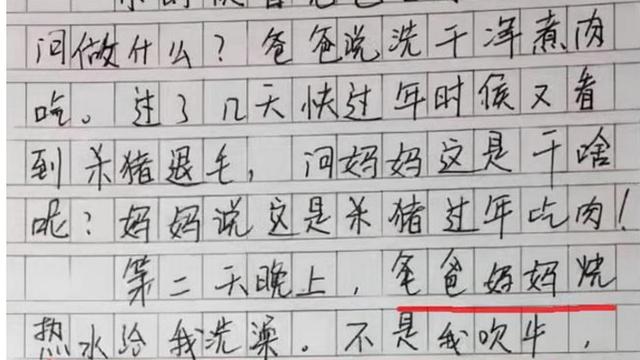 问做什么？爸爸说洗干净煮肉
吃。过了几天快过年时候又看
到杀猪退毛，问妈妈这是干啥
呢？妈妈说这是杀猪过年吃肉！
第二天晚上，爸爸妈妈烧
热水给我洗澡。不是我吹牛，